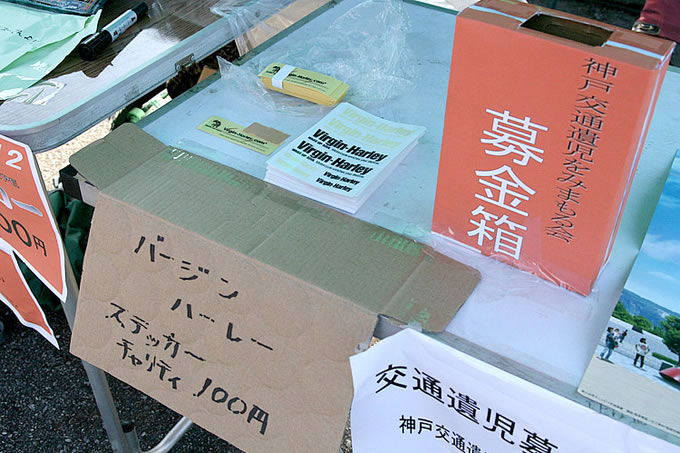 神戸交通遺児をみまもる会
募金箱
Virgin-Harley.com
Virgin-Harley.com
Virgin-Harley
Virgin-Harley
Virgin-Harley
Virgin-Harley
バージン
ハーレー
ステッカー
チャリティ 100円
12
00円
交通遺児募
神戸交通遺